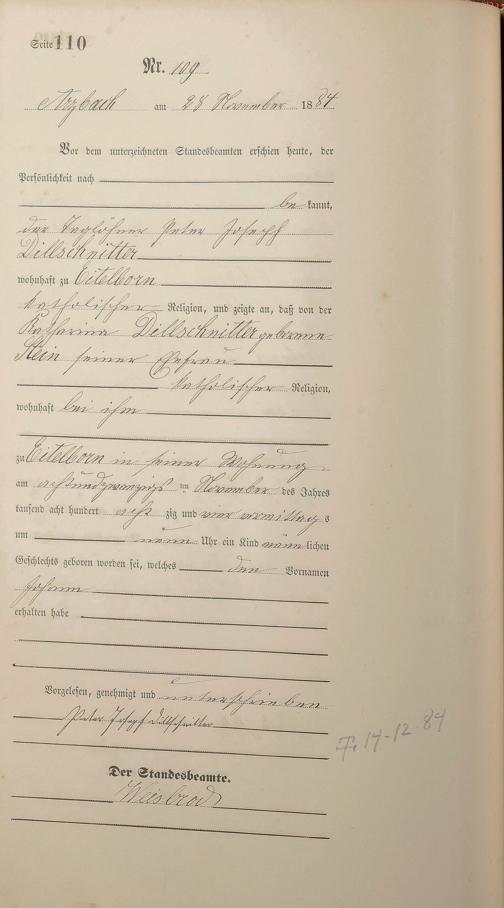 Seite 110
Nr. 109
Arzbach am 28 November 1884
Vor dem unterzeichneten Standesbeamten erschien heute, der
Persönlichkeit nach
be kannt,
der Taglöhner Peter Joseph
Dillschnitter
wohnhaft zu Eitelborn
katholischer Religion, und zeigte an, daß von der
Katharina Dillschnitter geborene
Stein seiner Ehefrau
katholischer Religion,
wohnhaft bei ihm
zu Eitelborn in seiner Wohnung
am achtundzwanzigst en November des Jahres
tausend acht hundert acht zig und vier vormittag s
um neun Uhr ein Kind männ lichen
Geschlechts geboren worden sei, welches den Vornamen
Johann
erhalten habe
Vorgelesen, genehmigt und unterschrieben
Peter Josepf Dillschnitter
Der Standesbeamte.
Weisbrod
14-12-84